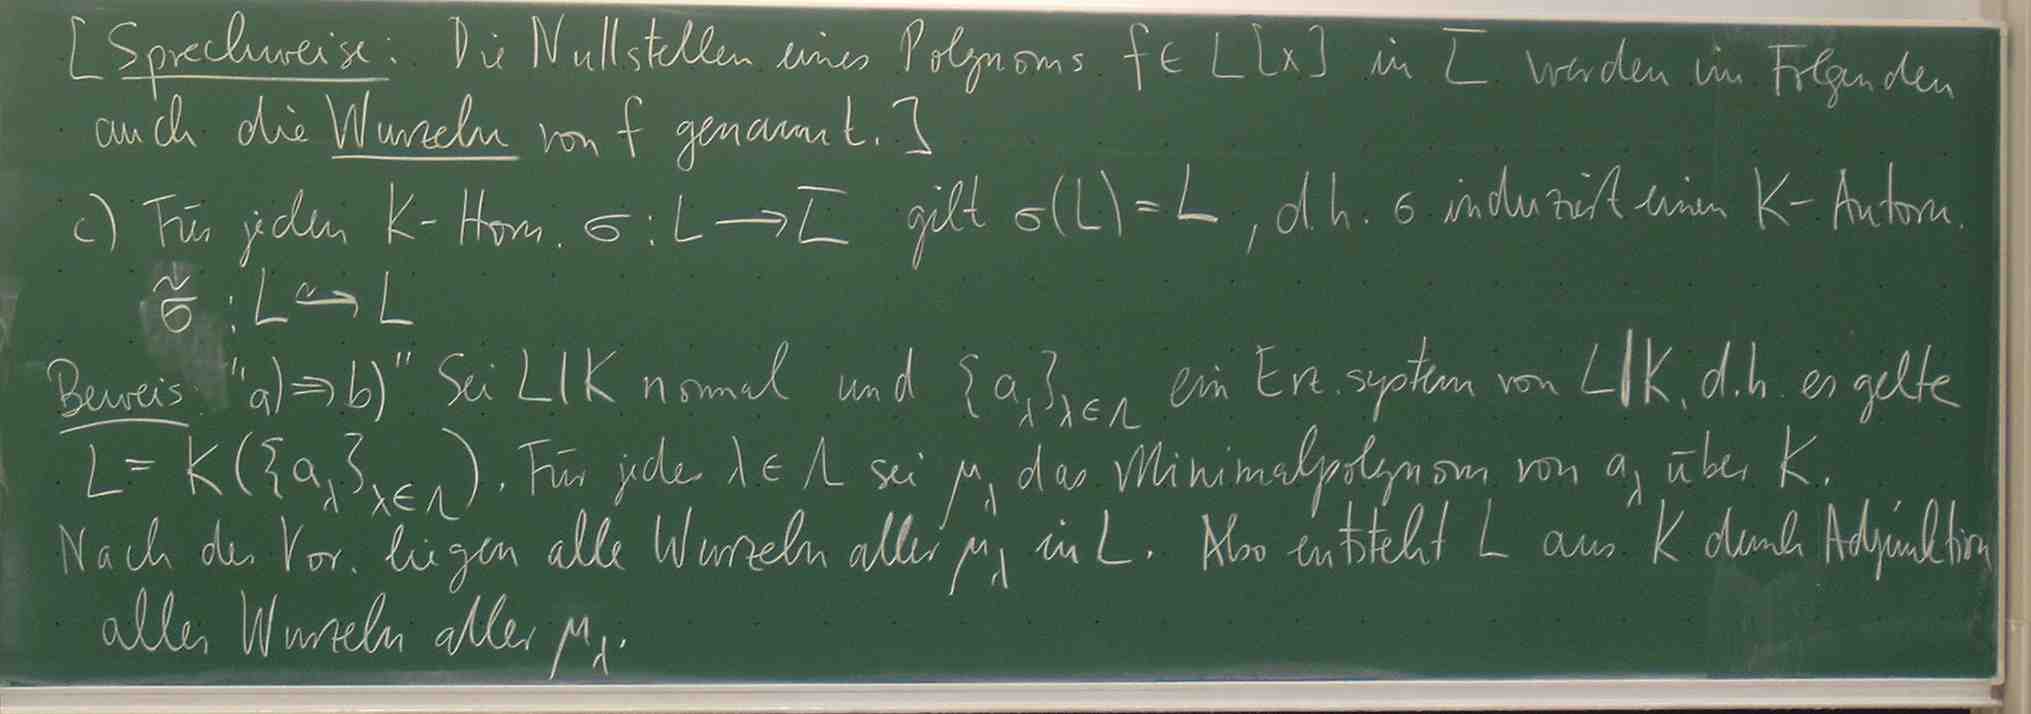 [Sprechweise: Die Nullstellen eines Polynoms f ∈ L[x] in L̅ werden im Folgenden
auch die Wurzeln von f genannt.]
c) Für jeden K-Hom. σ: L → L̅ gilt σ(L) = L, d.h. σ induziert einen K-Autom.
σ̃ : L ⥲ L
Beweis: "a) ⇒ b)" Sei L|K normal und {a_λ}_{λ∈Λ} ein Erz.system von L|K, d.h. es gelte
L = K({a_λ}_{λ∈Λ}). Für jedes λ ∈ Λ sei μ_λ das Minimalpolynom von a_λ über K.
Nach der Vor. liegen alle Wurzeln aller μ_λ in L. Also entsteht L aus K durch Adjunktion
aller Wurzeln aller μ_λ.